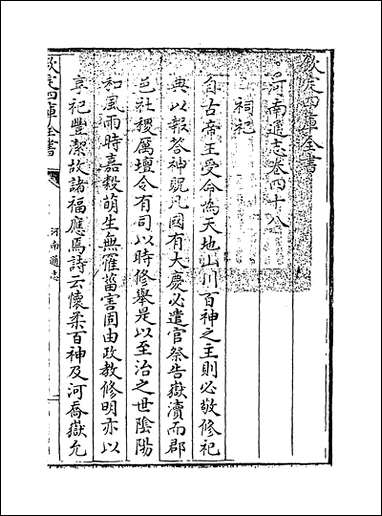 欽定四庫全書
河南通志卷四十八
祠祀
自古帝王受命為天地山川百神之主則必敬修祀
典以報答神貺凡國有大慶必遣官祭告嶽瀆而郡
邑社稷厲壇令有司以時修舉是以至治之世隂陽
和風雨時嘉穀萌生無罹菑害固由政教修明亦以
享祀豐潔故諸福應焉詩云懷柔百神及河喬嶽允
欽定四庫全書
河南通志